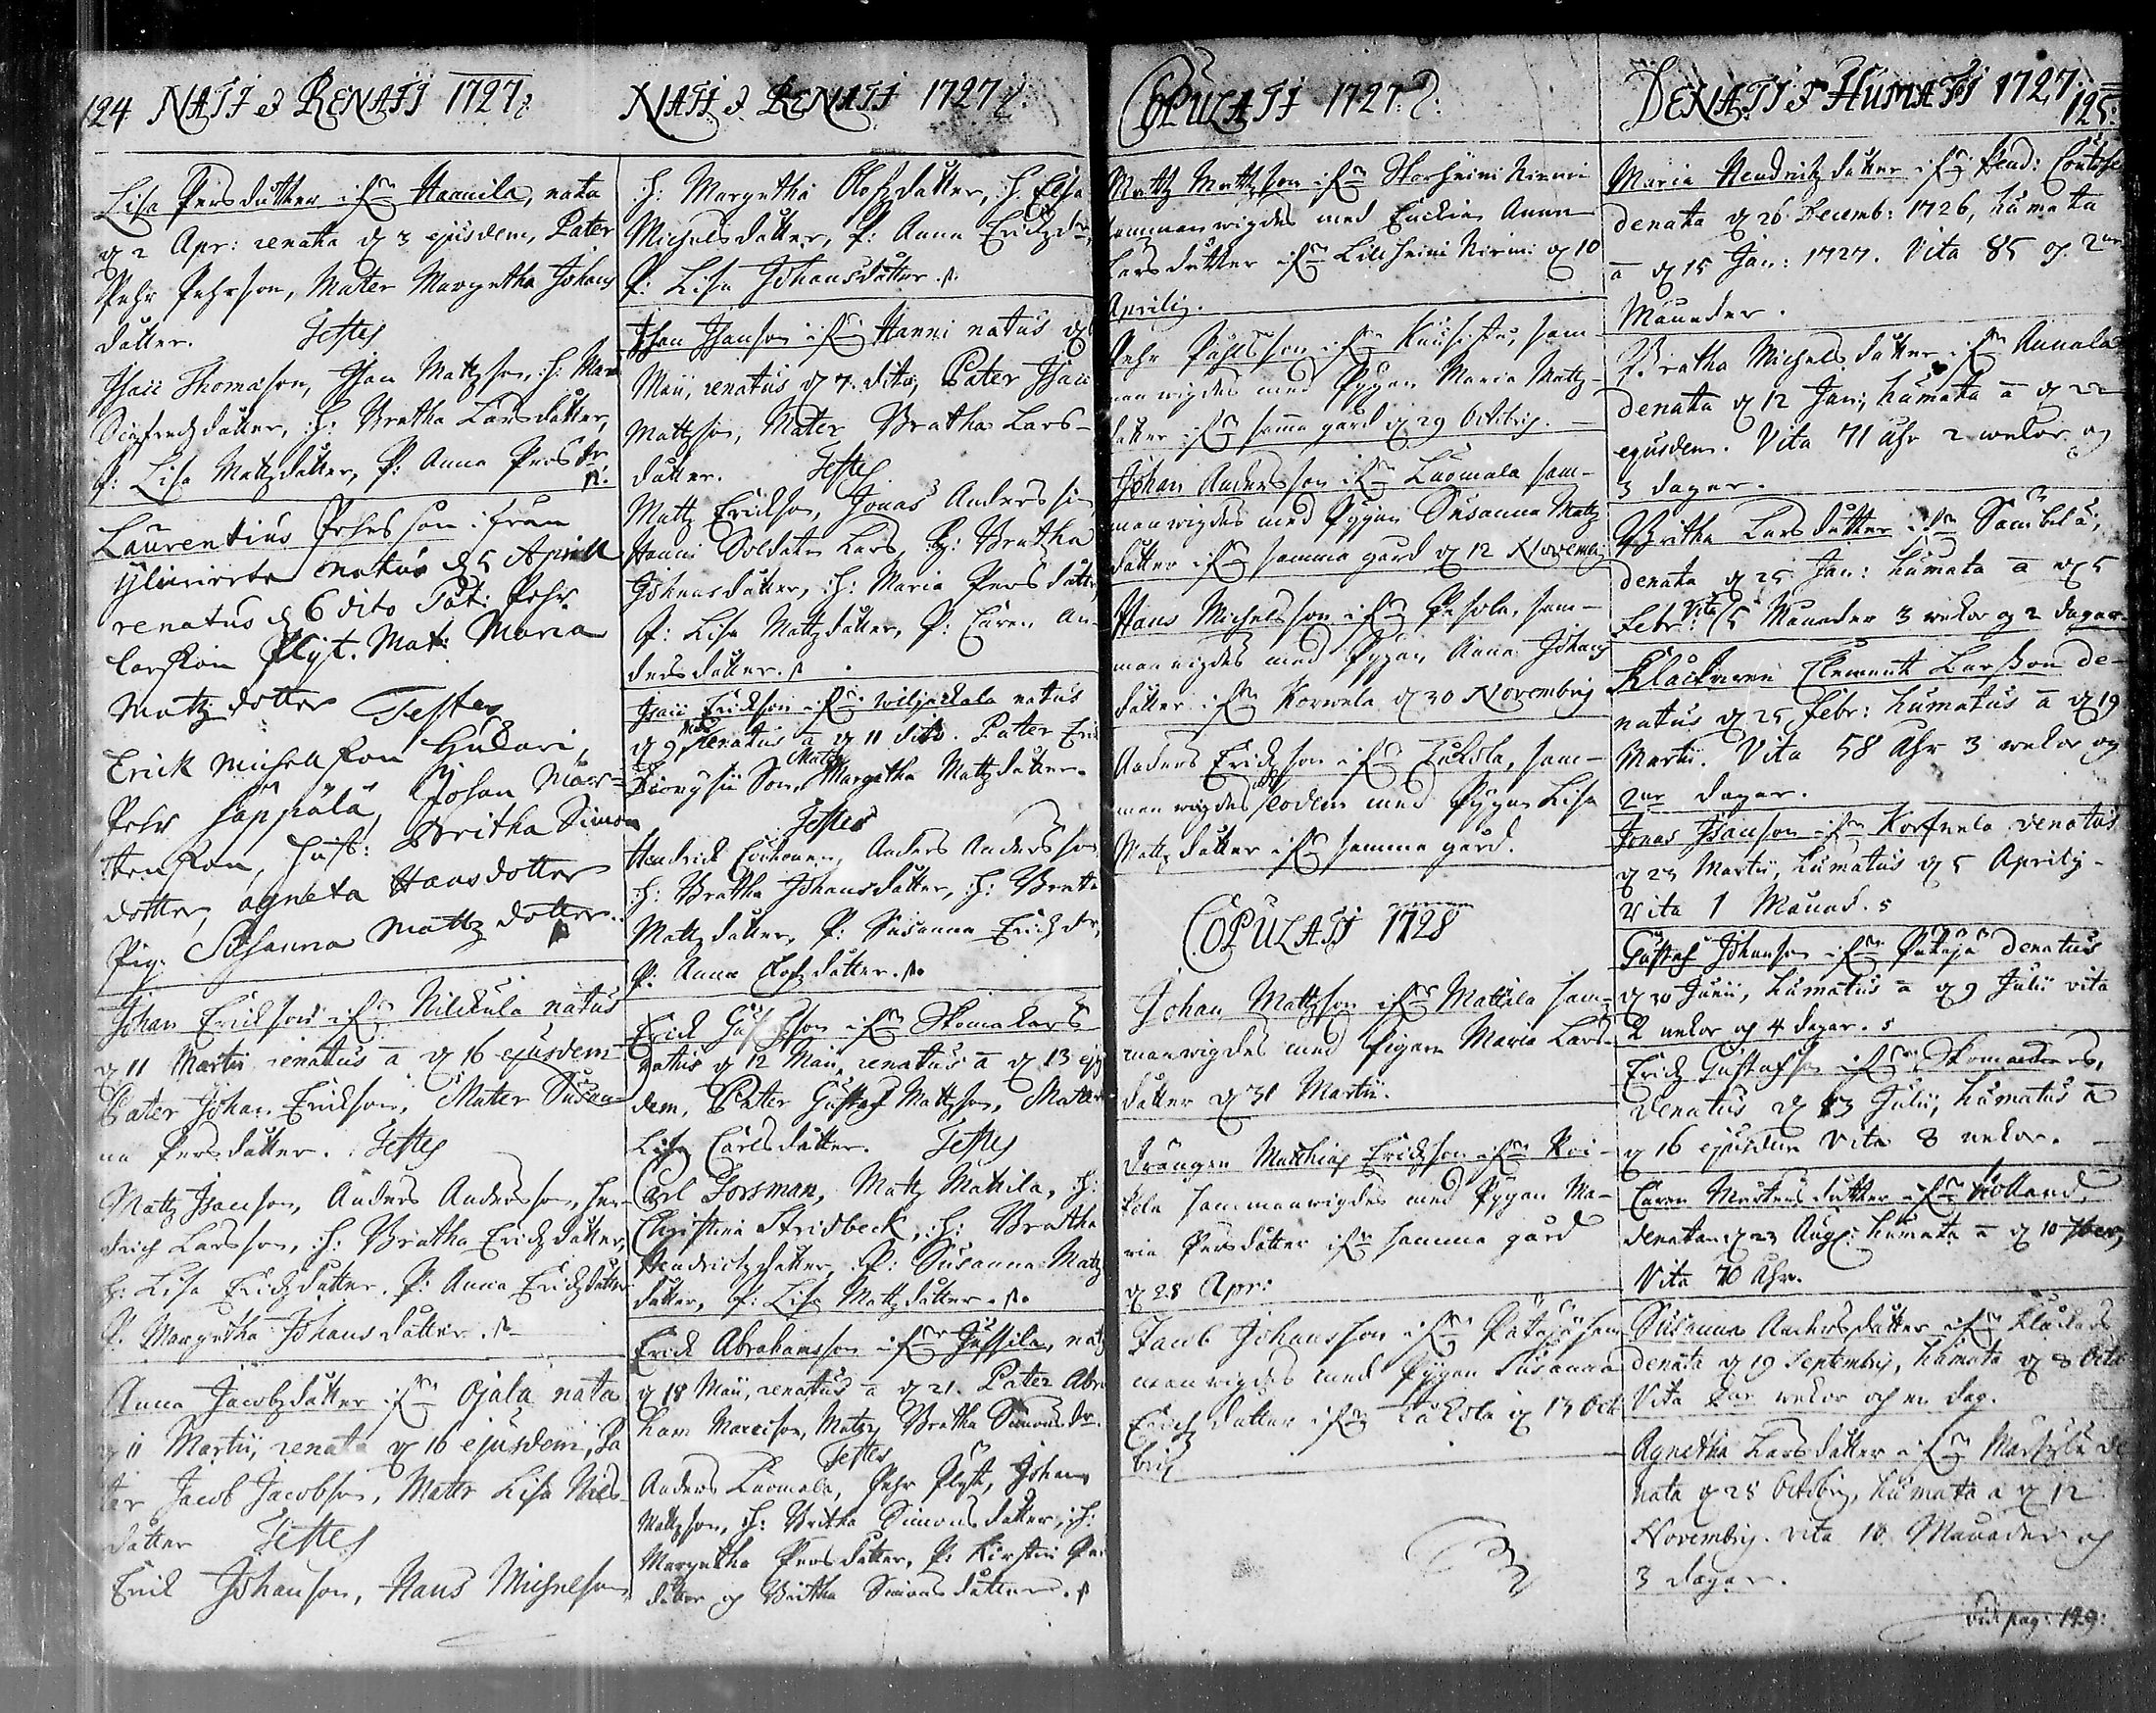 124 NATI & RENATI 1727
Lisa Persdatter ifrån Hannila, nata
d 2 Apr: renata d 3 ejusdem, Pater
Pehr Pehrson, Mater Margretha Johans
datter. Testes
Isaac Thomason, Isac Mattzson, H: Maria
Sigfredzdatter, H: Bretha Larsdatter,
P: Lisa Mattzdatter, P: Anna Persdr
Laurentius Pehrsson ifrån
natus d 5 Aprill
renatus d 6 dito Pat: Pehr
Larsson Plyt. Mat: Maria
Mattzdotter Testes
Erick Michellsson Hudari,
Pehr Säppälä, Johan Mår-
tensson, hust: Britha Simons
dotter, Agneta Hansdotter
Pig. Susanna Mattzdotter
Johan Erickson ifrån Nickula natus
d 11 Martii renatus a d 16 ejusdem
Pater Johan Erickson, Mater Susan
na Persdatter. Testes
Mattz Isacson, Anders Andersson, Hen-
drich Larsson, H: Bretha Erichzdatter,
H: Lisa Erichzdatter, P: Anna Erichzdatter
P. Margretha Johansdatter.
Anna Jacobzdatter ifrån Ojala nata
d 11 Martii, renata d 16 ejusdem, Pa
ter Jacob Jacobson, Mater Lisa Niels
datter Testes
Erick Johanson, Hans Michelson
NATI & RENATI 1727
H: Margretha Olofzdatter, H. Elsa
Michelsdatter, P: Anna Erichzdr,
P: Lisa Johansdatter.
Isac Isacson ifrån Hanni natus d
Maii, renatus d 7. dito, Pater Isac
Mattzson, Mater Bretha Lars-
datter. Testes
Mattz Erickson, Jonas Andersson
Hanni Soldaten Lars, H: Bretha
Johansdatter, H: Maria Persdatter,
P: Lisa Mattzdatter, P: Caren An-
dersdatter.
Isaac Erickson ifrån Wiljackala natus
d 9 Maii renatus a d 11 dito. Pater Erick
Dionysii Son, Mater Margetha Mattzdatter.
Testes
Hendrich Coukonen, Anders Andersson
H: Bretha Johansdatter, H: Bretha
Mattzdatter, P: Susanna Erichzdr,
P. Anna Olofzdatter.
Erick Gustafson ifrån Skomakars
natus d 12 Maii, renatus a d 13 ejus
dem, Pater Gustaf Mattzson, Mater
Lisa Carlsdatter. Testes
Carl Forsman, Mattz Mattila, H:
Christina Stridbeck, H: Bretha
Hendrichzdatter, P: Susanna Mattz
datter, P: Lisa Mattzdatter.
Erick Abrahamsson ifrån Jussila, nat9
d 18 Maii, renatus a d 21. Pater Abra
ham Marcison, Mater Bretha Simonsdr.
Testes
Anders Luomala, Pehr Plyt, Johan
Mattzson, H: Britha Simonsdatter, H:
Margretha Persdatter, P: Kirstin Pers
datter och Britha Simonsdatter.
COPULATI 1727
Mattz Mattzson ifrån Storheini Niemi
sammanwigdes med Enckian Anna
Larsdatter ifrån Lillheini Niemi d 10
Aprilis.
Pehr Påhlsson ifrån Kuusisto, sam-
manwigdes med Pigan Maria Mattz-
datter ifrån samma gård d 29 Octobris.
Johan Andersson ifrån Luomala sam-
manwigdes med Pygan Susanna Mattz
datter ifrån samma gård d 12 Novembris
Hans Michelsson ifrån Pesola, sam-
manwigdes med Pygan Anna Johans
datter ifrån Korwela d 30 Novembris
Anders Erichzson ifrån Luksla, sam-
manwigdes eodem med Pygan Lisa
Mattzdatter ifrån samma gård.
COPULATI 1728
Johan Mattzson ifrån Mattila sam-
manwigdes med Pigan Maria Lars-
datter d 31 Martii.
Drängen Matthias Erichzson ifrån Koi-
kola sammanwigdes med Pygan Ma-
ria Persdatter ifrån samma gård
d 28 Apr:
Jacob Johansson ifrån Patäjä sam
manwigdes med Pygan Susanna
Erichzdatter ifrån Luksla d 13 Octo
bris
DENATI & HUMATI 1727
125:
Maria Hendrichzdatter ifrån
denata d 26 Decemb: 1726, humata
a d 15 Jan: 1727. Vita 85 och 2ne
Månader.
Bretha Michelsdatter ifrån Annala
denata d 12 Jan; humata a d 22
ejusdem. Vita 71 Åhr 2 wekor och
3 dagar.
Britha Larsdatter ifrån Sambelä,
denata d 25 Jan: humata a d 5
Febr: Vita 5 Månader 3 wekor och 2 dagar
Klåckaren Clemett Larsson de-
natus d 25 Febr: humatus a d 19
Martii. Vita 58 Åhr 3 wekor och
2ne dagar.
Jonas Isacson ifrån Korfwela denatus
d 23 Martii, humatus d 5 Aprilis
Vita 1 Månad.
Gustaf Johanson ifrån Patäjä denatus
d 30 Junii, humatus a d 9 Julii vita
2 wekor och 4 dagar.
Erich Gustafson ifrån Skomakers,
denatus d 13 Julii, humatus a
d 16 ejusdem Vita 8 wekor.
Caren Mårtensdatter ifrån Kolland,
denata d 23 Aug: humata a d 10 7ber,
Vita 70 Åhr.
Susanna Andersdatter ifrån Klåckars
denata d 19 Septembris, humata d 8 Octo
Vita 2ne wekor och en dag.
Agnetha Larsdatter ifrån Markylä de
nata d 28 Octobris, humata a d 12
Novembris. vita 18 Månader och
3 dagar.
vide pag: 129: